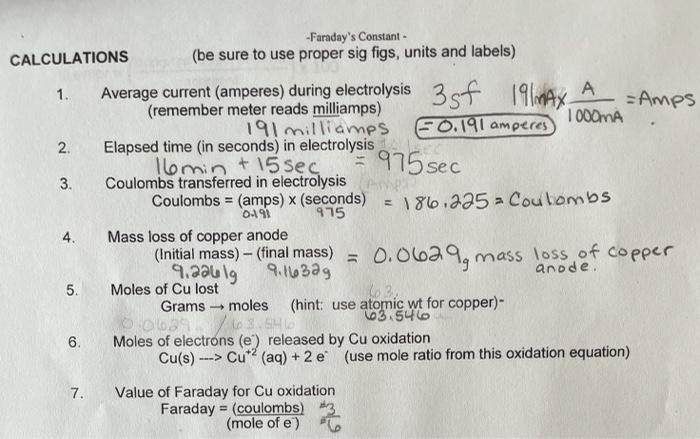 -Faraday's Constant -
CALCULATIONS (be sure to use proper sig figs, units and labels)
1. Average current (amperes) during electrolysis 3sf 191mA x A/1000mA = Amps
(remember meter reads milliamps)
191 milliamps = 0.191 amperes
2. Elapsed time (in seconds) in electrolysis
16min + 15sec = 975 sec
3. Coulombs transferred in electrolysis
Coulombs = (amps) x (seconds) = 186.225 = Coulombs
0.191 975
4. Mass loss of copper anode
(Initial mass) – (final mass) = 0.0629g mass loss of copper anode.
9.2261g 9.1632g
5. Moles of Cu lost
63.
Grams → moles (hint: use atomic wt for copper)-
63.546
0.0629 / 63.546
6. Moles of electrons (e⁻) released by Cu oxidation
Cu(s) ---> Cu⁺² (aq) + 2 e⁻ (use mole ratio from this oxidation equation)
7. Value of Faraday for Cu oxidation
Faraday = (coulombs) #3
(mole of e⁻) #6